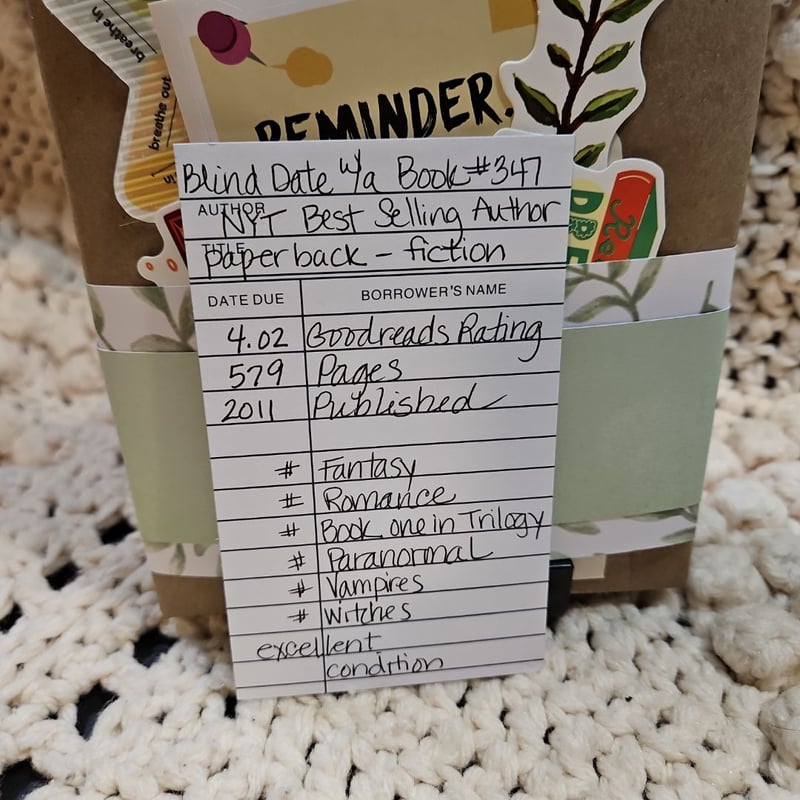 breathe in
breathe out
REMINDER.
Blind Date w/a Book #347
AUTHOR NYT Best Selling Author
TITLE paperback - fiction
DATE DUE BORROWER'S NAME
4.02 Goodreads Rating
579 Pages
2011 Published
# Fantasy
# Romance
# Book one in Trilogy
# Paranormal
# Vampires
# Witches
excellent
condition